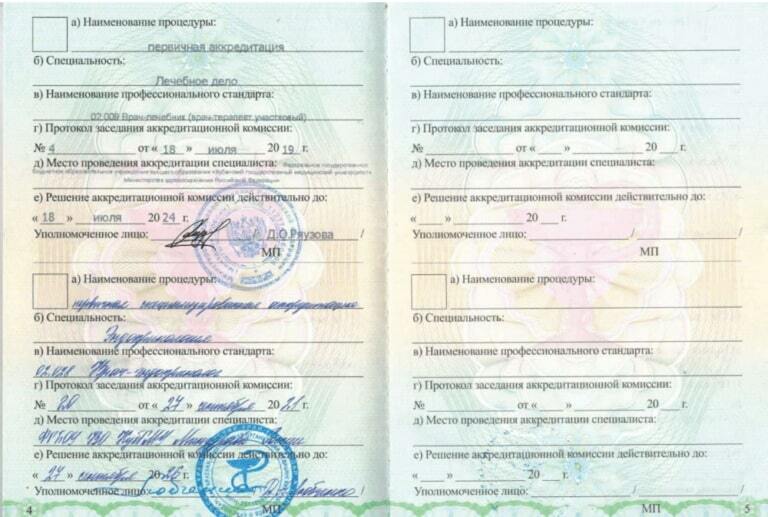 а) Наименование процедуры:
первичная аккредитация
б) Специальность:
Лечебное дело
в) Наименование профессионального стандарта:
02.009 Врач-лечебник (врач-терапевт участковый)
г) Протокол заседания аккредитационной комиссии:
№ 4 от « 18 » июля 20 19 г.
д) Место проведения аккредитации специалиста: Федеральное государственное
бюджетное образовательное учреждение высшего образования «Кубанский государственный медицинский университет»
Министерства здравоохранения Российской Федерации
е) Решение аккредитационной комиссии действительно до:
« 18 » июля 20 24 г.
Уполномоченное лицо: / Д.О.Ряузова /
МП
а) Наименование процедуры:
первичная специализированная аккредитация
б) Специальность:
Эндокринология
в) Наименование профессионального стандарта:
02.028 Врач-эндокринолог
г) Протокол заседания аккредитационной комиссии:
№ 20 от « 27 » сентября 20 21 г.
д) Место проведения аккредитации специалиста:
ФГБОУ ВО КубГМУ Минздрава России
е) Решение аккредитационной комиссии действительно до:
« 27 » сентября 20 26 г.
Уполномоченное лицо:
МП
4
а) Наименование процедуры:
б) Специальность:
в) Наименование профессионального стандарта:
г) Протокол заседания аккредитационной комиссии:
№ от « » 20 г.
д) Место проведения аккредитации специалиста:
е) Решение аккредитационной комиссии действительно до:
« » 20 г.
Уполномоченное лицо: / /
МП
а) Наименование процедуры:
б) Специальность:
в) Наименование профессионального стандарта:
г) Протокол заседания аккредитационной комиссии:
№ от « » 20 г.
д) Место проведения аккредитации специалиста:
е) Решение аккредитационной комиссии действительно до:
« » 20 г.
Уполномоченное лицо: / /
МП
5